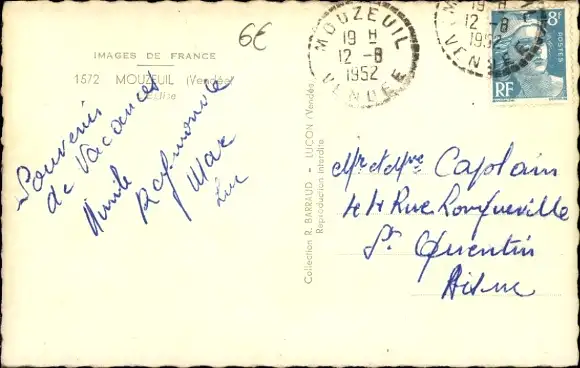 6€
IMAGES DE FRANCE
1572 MOUZEUIL (Vendée)
Eglise
Souvenirs
de Vacances
Raymonde
Max
Luc
Collection R. BARRAUD - LUCON (Vendée)
Reproduction interdite
MOUZEUIL
19 H
12 -8
1952
VENDEE
19 H
12 -8
1952
VENDEE
8F
POSTES
RF
Mr et Mme Caplain
44 Rue Longueville
St Quentin
Aisne